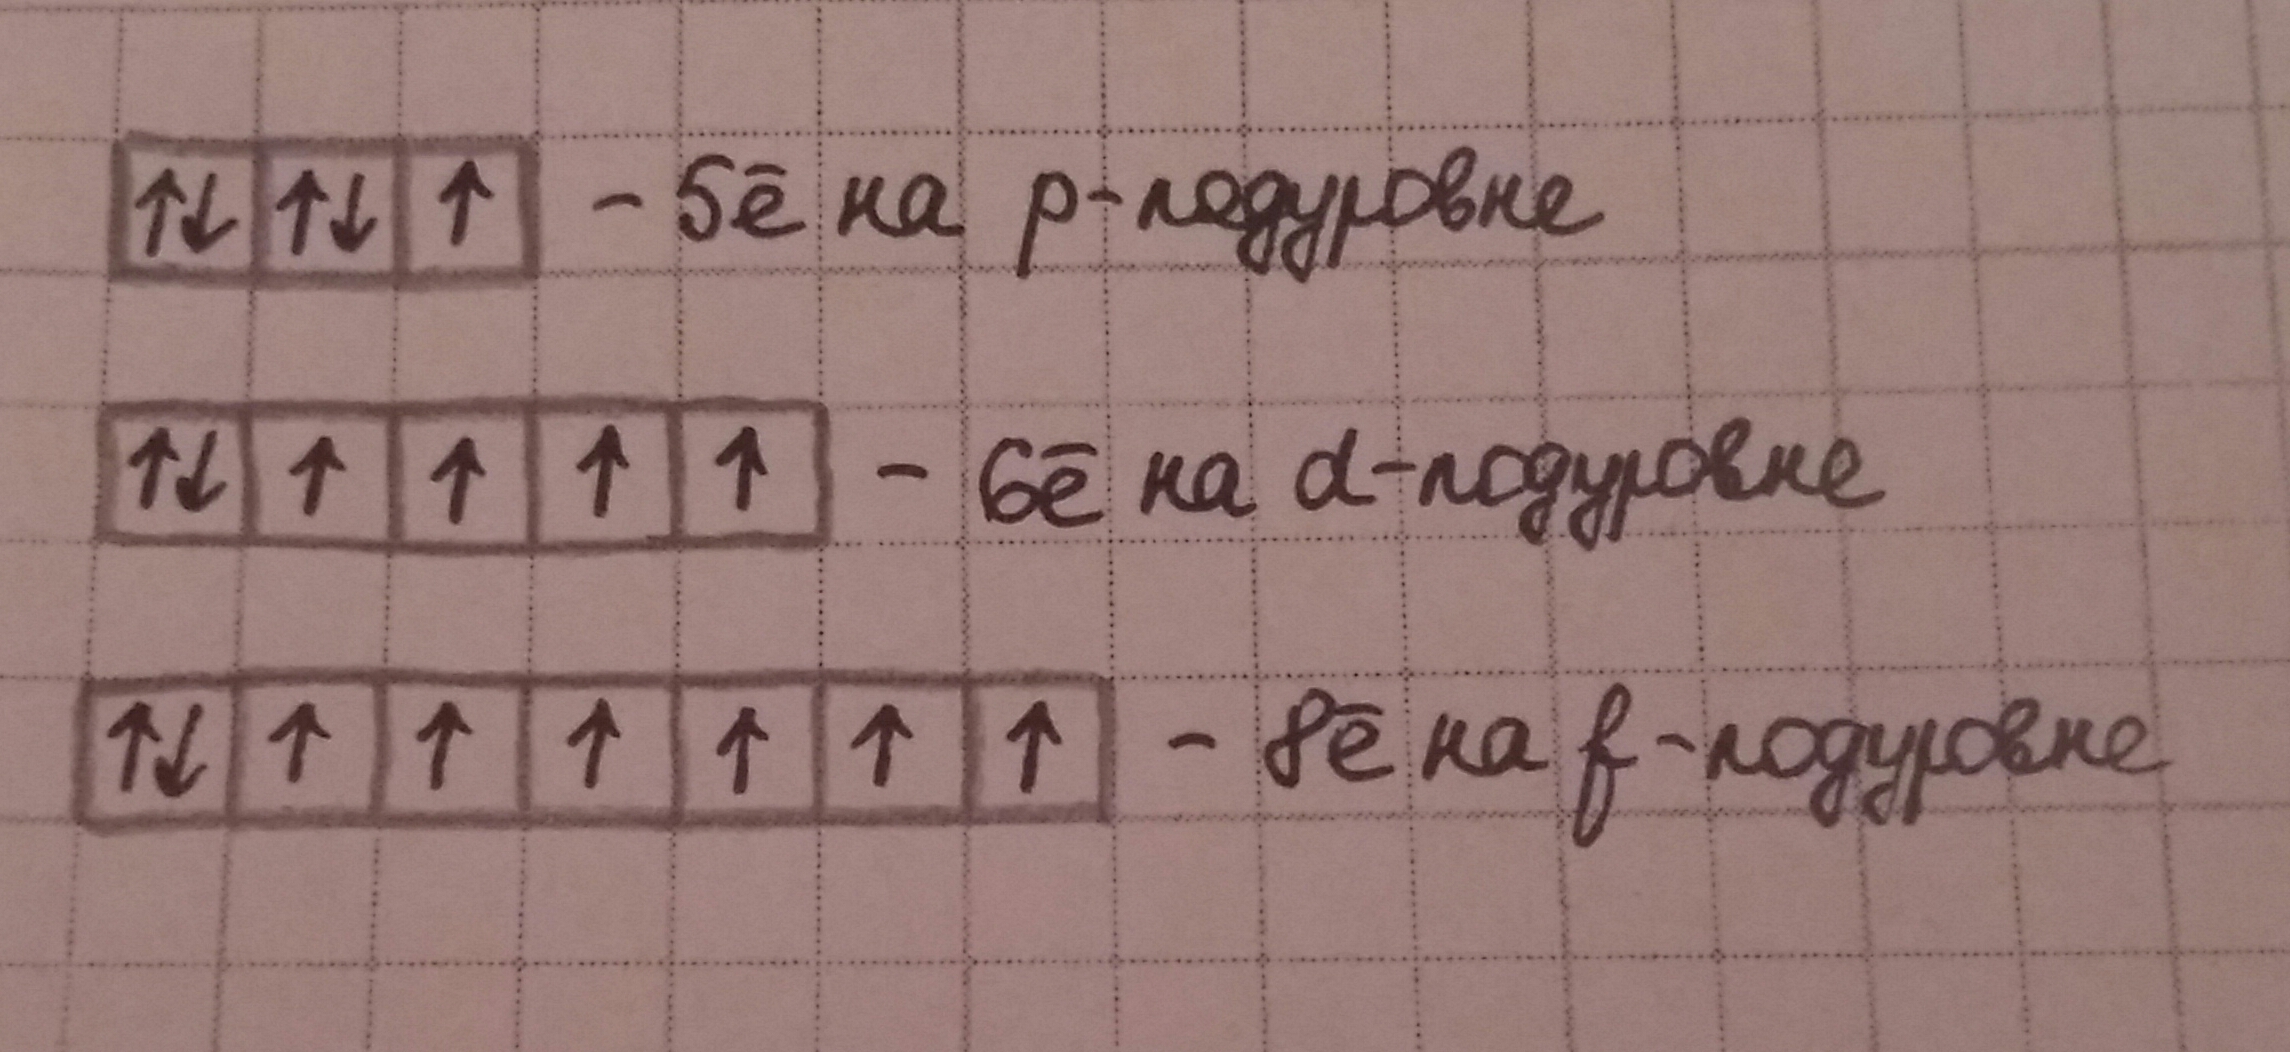 ↑↓ ↑↓ ↑ - 5ē на p-подуровне
↑↓ ↑ ↑ ↑ ↑ - 6ē на d-подуровне
↑↓ ↑ ↑ ↑ ↑ ↑ ↑ - 8ē на f-подуровне